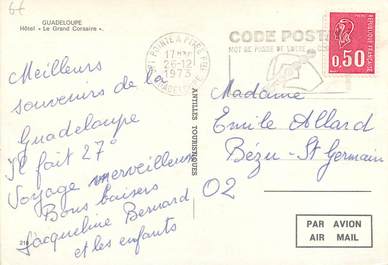 66
GUADELOUPE
Hôtel « Le Grand Corsaire ».
POINTE A PITRE PPAL
17H
26-12
1973
GUADELOUPE
CODE POSTAL
MOT DE PASSE DE VOTRE
RÉPUBLIQUE FRANÇAISE
0,50
Meilleurs
souvenirs de la
Guadeloupe
Il fait 27°
Voyage merveilleux
Bons baisers
Jacqueline Bernard
et les enfants
ANTILLES TOURISTIQUES
Madame
Emile Allard
Bézu-St Germain
02
PAR AVION
AIR MAIL